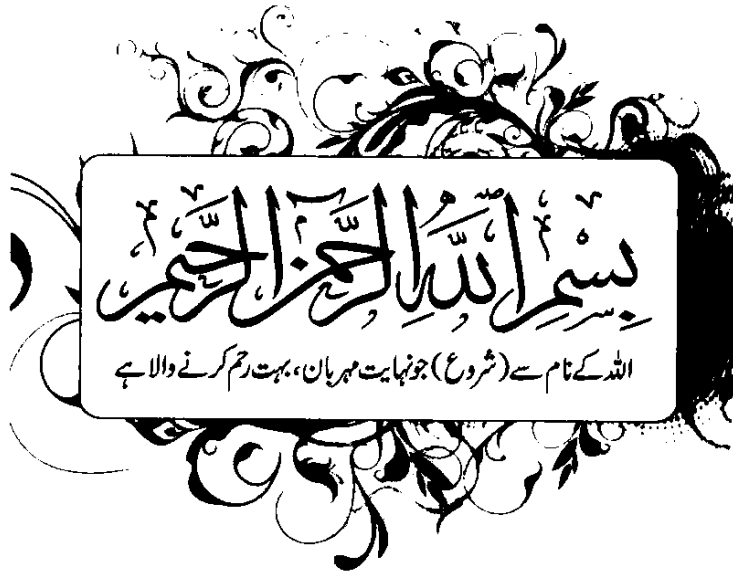 بِسْمِ اللّٰهِ الرَّحْمٰنِ الرَّحِيْمِ
اللہ کے نام سے (شروع) جو نہایت مہربان، بہت رحم کرنے والا ہے